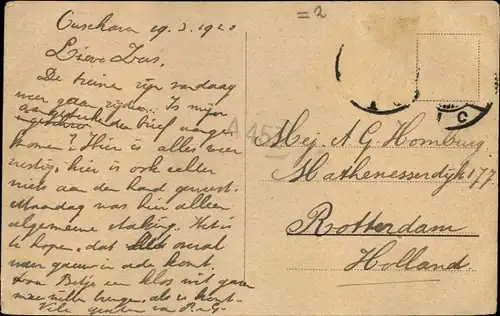 19.3.1920
Lieve Zus,
De treinen zijn vandaag
weer gaan rijden. Is mijn
aangetekenden brief aange-
komen? Hier is alles weer
rustig, hier is ook
niets aan de hand geweest.
Maandag was hier alleen
algemeene staking. Het is
te hopen, dat alles overal
weer in orde komt.
Betje een klos wit garen
A 457
= 2
Mej. A G Homburg
Mathenesserdijk 177
Rotterdam
Holland.